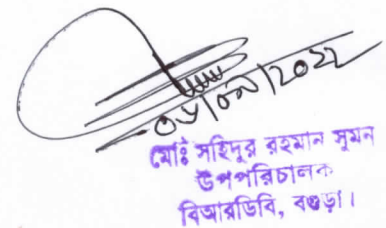 ০৮/০৯/২০২২
মোঃ সহিদুর রহমান সুমন
উপপরিচালক
বিআরডিবি, বগুড়া।